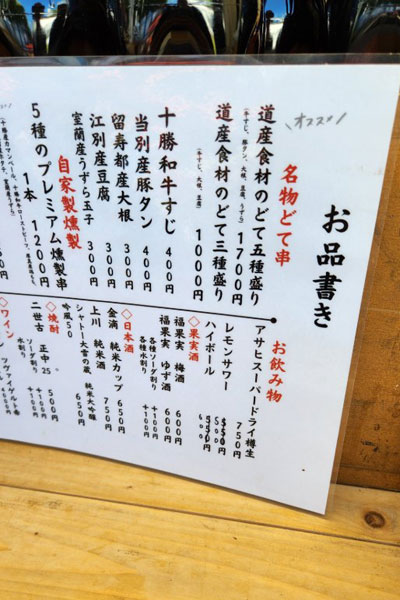 お品書き
オススメ
名物どて串
道産食材のどて五種盛り
(牛すじ、豚タン、大根、豆腐、うずら)
1700円
道産食材のどて三種盛り
(牛すじ、大根、豆腐)
1000円
十勝和牛すじ 400円
当別産豚タン 400円
留寿都産大根 300円
江別産豆腐 300円
室蘭産うずら玉子 300円
自家製燻製
5種のプレミアム燻製串
1本 1200円
お飲み物
アサヒスーパードライ樽生 750円
レモンサワー 600
ハイボール 600
◇果実酒
福果実 梅酒 600円
福果実 ゆず酒 600円
各種ソーダ割り +100円
各種水割り +100円
◇日本酒
金滴 純米カップ 650円
上川 純米酒 750円
シャトー大雪の蔵 純米大吟醸
吟風50 650円
◇焼酎
二世古 正中。25 500円
ソーダ割り +100円
水割り +100円
◇ワイン